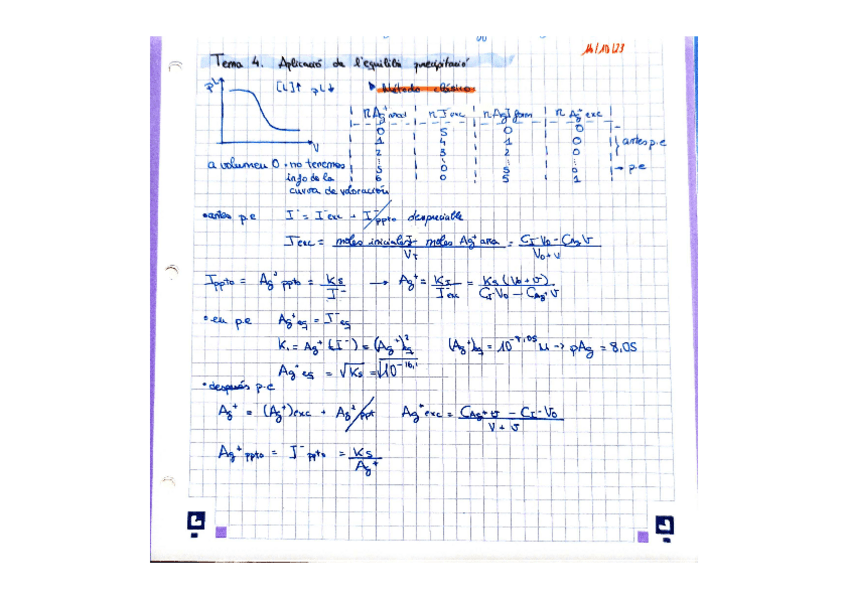 14/10/23
Tema 4. Aplicació de l'equilibri precipitació
pL [L]↑ pL↓ ▸ Método clásico
V
n Ag⁺ val | n I⁻ exc | n AgI form | n Ag⁺ exc
0 5 0 0
1 4 1 0 } antes p.e
2 3 2 0
⋮ ⋮ ⋮ ⋮
5 0 5 0 → p.e
6 0 5 1
a volumen 0 · no tenemos
info de la
curva de valoración
• antes p.e I⁻ = I⁻exc + I⁻ppto despreciable
I exc = moles iniciales I⁻ moles Ag⁺ ana / V_T = C_I⁻V₀ − C_Ag V / V₀+V
I ppto = Ag⁺ ppto = Ks / I⁻ → Ag⁺ = K_I / I⁻exc = Ks (V₀+V) / C_I V₀ − C_Ag⁺ V
• en p.e Ag⁺eq = I⁻eq
Ks = Ag⁺ (I⁻) = (Ag⁺)²eq (Ag⁺)eq = 10^-8,05 M → pAg = 8,05
Ag⁺eq = √Ks = √10^-16,1
• después p.e
Ag⁺ = (Ag⁺)exc + Ag⁺ppt Ag⁺exc = C_Ag⁺ V − C_I⁻ V₀ / V + V
Ag⁺ppto = I⁻ppto = Ks / Ag⁺